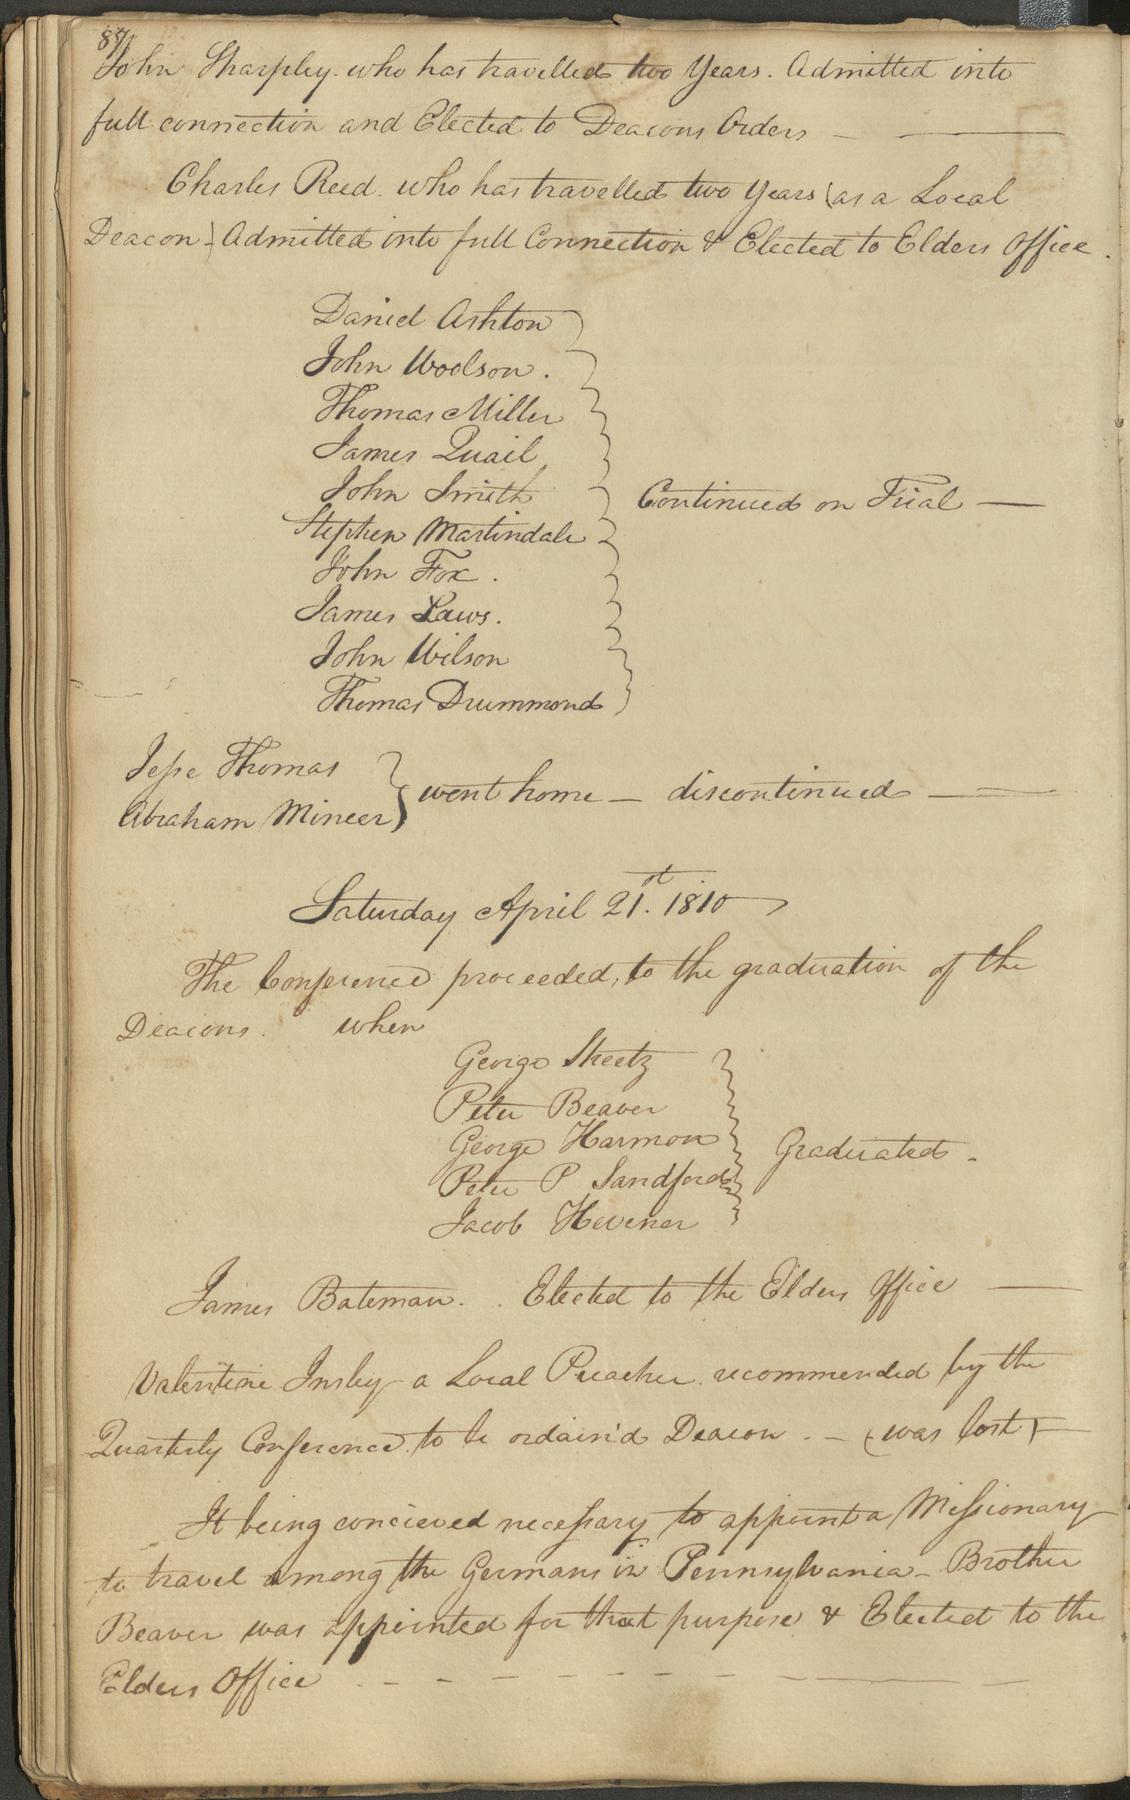 87
John Sharpley. who has travelled two Years. Admitted into
full connection and Elected to Deacons Orders —
Charles Reed. who has travelled two Years (as a Local
Deacon) Admitted into full Connection & Elected to Elders Office.
Daniel Ashton
John Woolson.
Thomas Miller
James Quail
John Smith
Continued on Trial —
Stephen Martindale
John Fox.
James Laws.
John Wilson
Thomas Drummond
Jesse Thomas
Abraham Mineer
went home — discontinued —
Saturday April 21.st 1810
The Conference proceeded, to the graduation of the
Deacons. when
George Sheetz
Peter Beaver
George Harmon
Graduated -
Peter P Sandford
Jacob Hevener
James Bateman. . Elected to the Elders Office —
Valentine Insley a Local Preacher. recommended by the
Quarterly Conference. to be ordain'd Deacon. — (was lost) —
It being concieved necessary to appoint a Missionary
to travel among the Germans in Pennsylvania - Brother
Beaver was appointed for that purpose & Elected to the
Elders Office - - - - - - - —